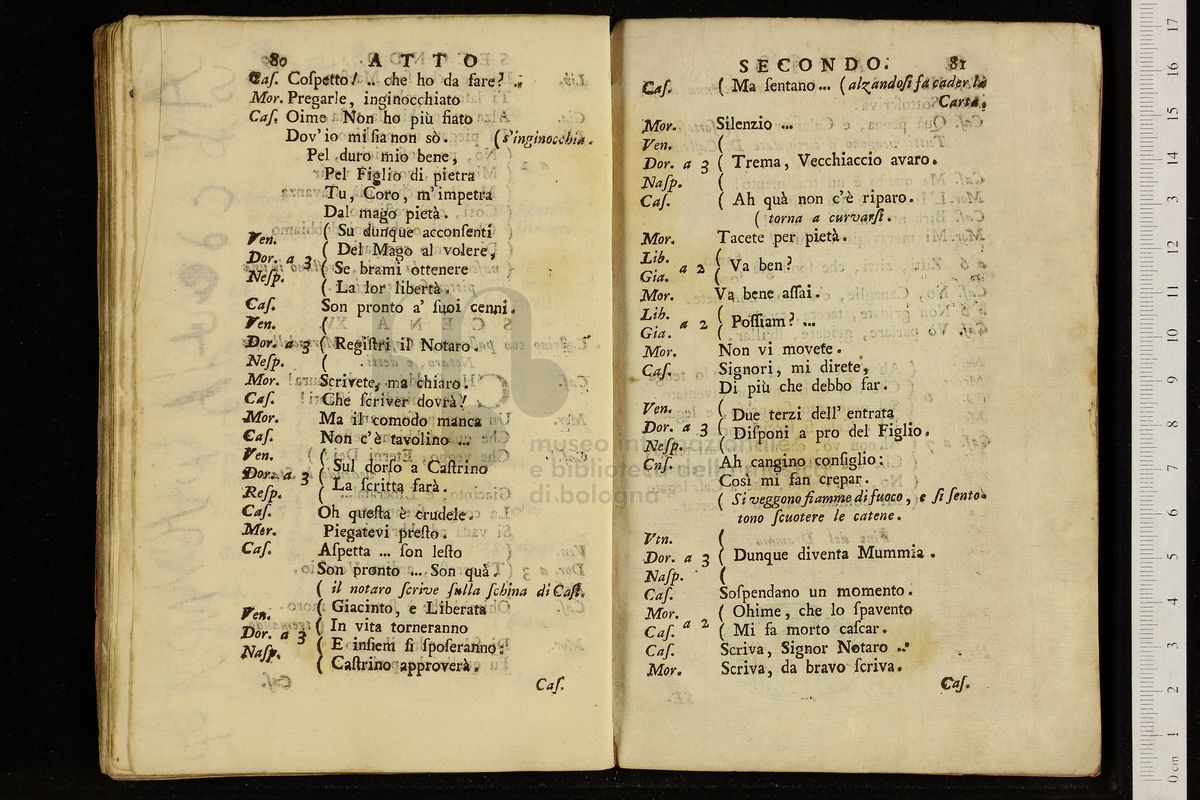 80 ATTO
Caſ. Coſpetto! .. che ho da fare? ..
Mor. Pregarle, inginocchiato
Caſ. Oime Non ho più fiato
Dov' io mi ſia non sò. (s'inginocchia.
Pel duro mio bene,
Pel Figlio di pietra
Tu, Coro, m'impetra
Dal mago pietà.
( Su dunque acconſenti
Ven. ( Del Mago al volere,
Dor. a 3 ( Se brami ottenere
Neſp. ( La lor libertà.
Caſ. Son pronto a' ſuoi cenni.
Ven. (
Dor. a 3 ( Regiſtri il Notaro.
Neſp. (
Mor. Scrivete, ma chiaro.
Caſ. Che ſcriver dovrà!
Mor. Ma il comodo manca
Caſ. Non c'è tavolino ...
Ven. (
Dor. a 3 ( Sul dorſo a Caſtrino
Reſp. ( La ſcritta farà.
Caſ. Oh queſta è crudele.
Mor. Piegatevi preſto.
Caſ. Aſpetta ... ſon leſto
Son pronto ... Son quà.
( il notaro ſcrive ſulla ſchina di Caſt.
Ven. ( Giacinto, e Liberata
Dor. a 3 ( In vita torneranno
Naſp. ( E inſiem ſi ſpoſeranno:
( Caſtrino approverà.
Caſ.
SECONDO. 81
Caſ. ( Ma ſentano ... (alzandoſi fa cader la
Carta.
Mor. Silenzio ...
Ven. (
Dor. a 3 ( Trema, Vecchiaccio avaro.
Naſp. (
Caſ. ( Ah quà non c'è riparo.
( torna a curvarſi.
Mor. Tacete per pietà.
Lib. a 2 ( Va ben?
Gia. (
Mor. Va bene aſſai.
Lib. a 2 ( Poſſiam? ...
Gia. (
Mor. Non vi movete.
Caſ. Signori, mi direte,
Di più che debbo far.
Ven. ( Due terzi dell' entrata
Dor. a 3 ( Diſponi a pro del Figlio.
Neſp. (
Cnſ. Ah cangino conſiglio:
Così mi fan crepar.
( Si veggono fiamme di fuoco, e ſi ſento-
tono ſcuotere le catene.
Vtn. (
Dor. a 3 ( Dunque diventa Mummia.
Naſp. (
Caſ. Soſpendano un momento.
Mor. a 2 ( Ohime, che lo ſpavento
Caſ. ( Mi fa morto caſcar.
Caſ. Scriva, Signor Notaro ..
Mor. Scriva, da bravo ſcriva.
Caſ.
museo internazionale
e biblioteca della musica
di bologna